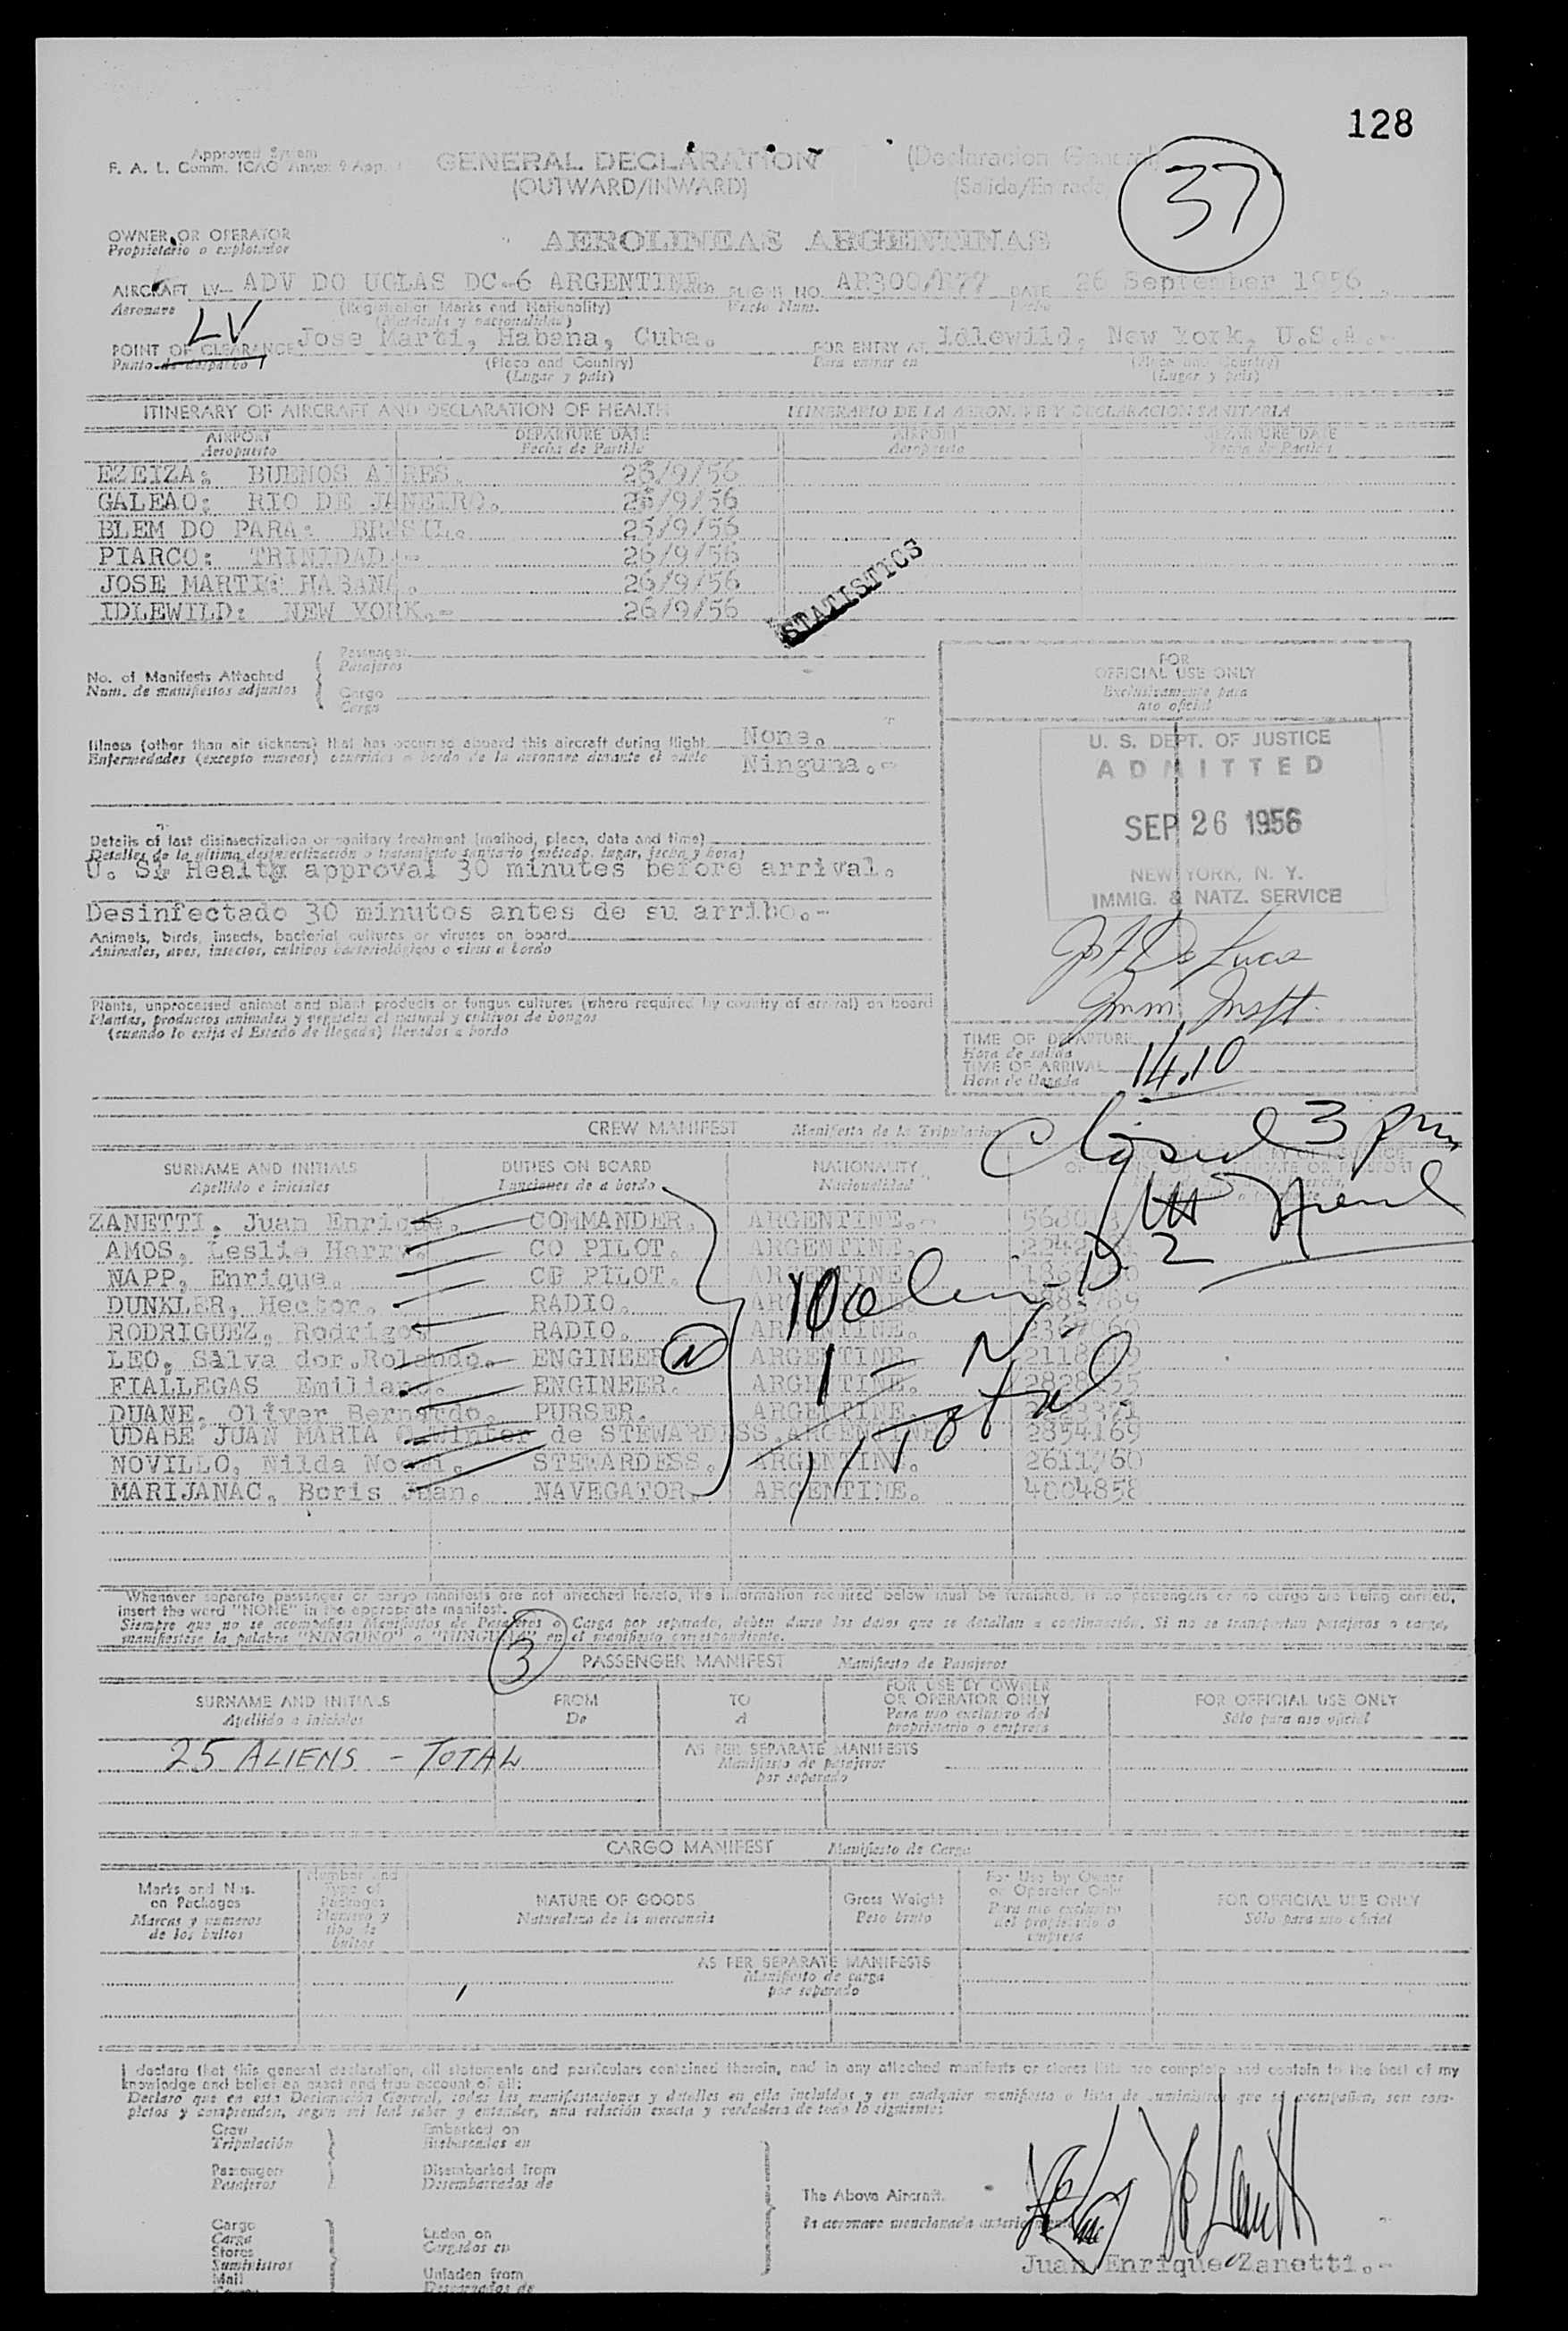 128
Approved System
F. A. L. Comm. ICAO Annex 9 App.
GENERAL DECLARATION
(Declaracion General)
(OUTWARD/INWARD)
(Salida/Entrada
37
OWNER OR OPERATOR
Proprietario o explotador
AEROLINEAS ARGENTINAS
AIRCRAFT LV- ADV DO UGLAS DC-6 ARGENTINE. FLIGHT NO. DATE 26 September 1956
Aeronave
(Registration Marks and Nationality)
Vuelo Num.
Fecha
(Matricula y nacionalidad)
LV
POINT OF CLEARANCE Jose Marti, Habana, Cuba. FOR ENTRY AT Idlewild, New York, U.S.A.-
Punto de despacho
(Place and Country)
Para entrar en
(Place and Country)
(Lugar y pais)
(Lugar y pais)
ITINERARY OF AIRCRAFT AND DECLARATION OF HEALTH
ITINERARIO DE LA AERONAVE Y DECLARACION SANITARIA
AIRPORT DEPARTURE DATE AIRPORT DEPARTURE DATE
Aeropuerto Fecha de Partida Aeropuerto Fecha de Partida
EZEIZA: BUENOS AIRES. 25/9/56
GALEAO: RIO DE JANEIRO. /9/56
BLEM DO PARA: BRASIL. 25/9/56
PIARCO: TRINIDAD.- 26/9/56
JOSE MARTI: HABANA. 26/9/56
IDLEWILD: NEW YORK.- 26/9/56
STATISTICS
No. of Manifests Attached
Num. de manifiestos adjuntos
Passenger
Pasajeros
Cargo
Carga
FOR
OFFICIAL USE ONLY
Exclusivamente para
uso oficial
Illness (other than air sickness) that has occurred aboard this aircraft during flight None.
Enfermedades (excepto mareos) ocurridas a bordo de la aeronave durante el vuelo Ninguna.-
U. S. DEPT. OF JUSTICE
ADMITTED
SEP 26 1956
NEW YORK, N. Y.
IMMIG. & NATZ. SERVICE
De Luca
Imm. Inspt.
Details of last disinsectization or sanitary treatment (method, place, date and time)
Detalles de la ultima desinsectización o tratamiento sanitario (método, lugar, fecha y hora)
U. S. Health approval 30 minutes before arrival.
Desinfectado 30 minutos antes de su arribo.-
Animals, birds, insects, bacterial cultures or viruses on board
Animales, aves, insectos, cultivos bacteriológicos o virus a bordo
Plants, unprocessed animal and plant products or fungus cultures (where required by country of arrival) on board
Plantas, productos animales y vegetales al natural y cultivos de hongos
(cuando lo exija el Estado de llegada) llevados a bordo
TIME OF DEPARTURE
Hora de salida
TIME OF ARRIVAL 14.10
Hora de llegada
Closed 3 pm
CREW MANIFEST Manifesto de la Tripulacion
SURNAME AND INITIALS DUTIES ON BOARD NATIONALITY
Apellido e iniciales Funciones de a bordo Nacionalidad
ZANETTI, Juan Enrique. COMMANDER. ARGENTINE.-
AMOS, Leslie Harry. CO PILOT. ARGENTINE.
NAPP, Enrique. CO PILOT. ARGENTINE
DUNKLER, Hector. RADIO. ARGENTINE.
RODRIGUEZ, Rodrigo. RADIO. ARGENTINE.
LEO, Salva dor.Rolando. ENGINEER ARGENTINE
FIALLEGAS Emiliano. ENGINEER. ARGENTINE.
DUANE, Oliver Bernardo. PURSER. ARGENTINE.
UDABE JUAN MARIA de STEWARDESS.ARGENTINE. 2854169
NOVILLO, Nilda Noemi. STEWARDESS. ARGENTINE. 2611760
MARIJANAC, Boris Juan. NAVEGATOR. ARGENTINE. 4004858
10 D 2
1 - N
11 Total
Whenever separate passenger or cargo manifests are not attached hereto, the information required below must be furnished. If no passengers or no cargo are being carried,
insert the word "NONE" in the appropriate manifest.
Siempre que no se acompañen Manifiestos de Pasajeros o Carga por separado, deben darse los datos que se detallan a continuación. Si no se transportan pasajeros o carga,
manifiestese la palabra "NINGUNO" o "NINGUNA" en el manifiesto correspondiente.
3
PASSENGER MANIFEST Manifiesto de Pasajeros
SURNAME AND INITIALS FROM TO FOR USE BY OWNER OR OPERATOR ONLY FOR OFFICIAL USE ONLY
Apellido e iniciales De A Para uso exclusivo del propietario o empresa Sólo para uso oficial
25 ALIENS - TOTAL
AS PER SEPARATE MANIFESTS
Manifiesto de pasajeros
por separado
CARGO MANIFEST Manifiesto de Carga
Marks and Nos. on Packages
Marcas y numeros de los bultos
Number and Type of Packages
Número y tipo de bultos
NATURE OF GOODS
Naturaleza de la mercancia
Gross Weight
Peso bruto
For Use by Owner or Operator Only
Para uso exclusivo del propietario o empresa
FOR OFFICIAL USE ONLY
Sólo para uso oficial
AS PER SEPARATE MANIFESTS
Manifiesto de carga
por separado
I declare that this general declaration, all statements and particulars contained therein, and in any attached manifests or stores lists are complete and contain to the best of my
knowledge and belief an exact and true account of all:
Declaro que en esta Declaración General, todas las manifestaciones y detalles en ella incluidos y en cualquier manifiesto o lista de suministros que se acompañen, son com-
pletos y comprenden, segun mi leal saber y entender, una relación exacta y verdadera de todo lo siguiente:
Crew
Tripulación
Passengers
Pasajeros
Embarked on
Embarcados en
Disembarked from
Desembarcados de
Cargo
Carga
Stores
Suministros
Mail
Laden on
Cargados en
Unladen from
Descargados de
The Above Aircraft.
la aeronave mencionada anteriormente
Juan Enrique Zanetti.-